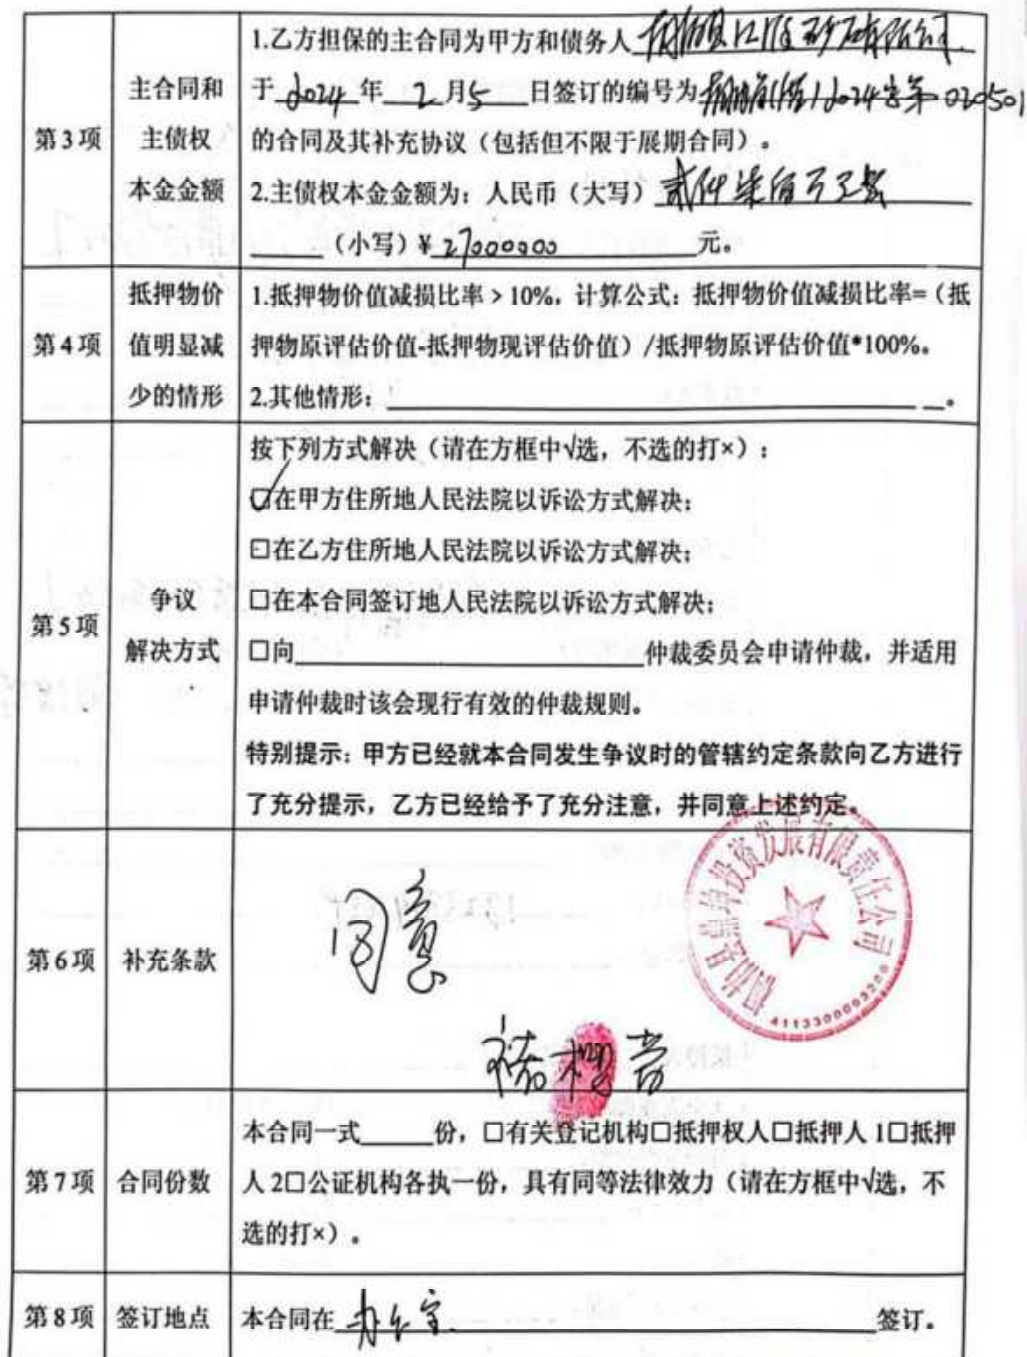 第3项
主合同和
主债权
本金金额
1.乙方担保的主合同为甲方和债务人
于 2024 年 2 月 5 日签订的编号为 2024 字第 020501
的合同及其补充协议（包括但不限于展期合同）。
2.主债权本金金额为：人民币（大写） 贰仟柒佰万元整
（小写）¥ 27000000 元。
第4项
抵押物价
值明显减
少的情形
1.抵押物价值减损比率＞10%，计算公式：抵押物价值减损比率=（抵
押物原评估价值-抵押物现评估价值）/抵押物原评估价值*100%。
2.其他情形：______。
第5项
争议
解决方式
按下列方式解决（请在方框中√选，不选的打×）：
☑在甲方住所地人民法院以诉讼方式解决；
口在乙方住所地人民法院以诉讼方式解决；
口在本合同签订地人民法院以诉讼方式解决；
口向______仲裁委员会申请仲裁，并适用
申请仲裁时该会现行有效的仲裁规则。
特别提示：甲方已经就本合同发生争议时的管辖约定条款向乙方进行
了充分提示，乙方已经给予了充分注意，并同意上述约定。
第6项
补充条款
同意
投资发展有限责任公司
4113300003200
第7项
合同份数
本合同一式____份，口有关登记机构口抵押权人口抵押人 1口抵押
人 2口公证机构各执一份，具有同等法律效力（请在方框中√选，不
选的打×）。
第8项
签订地点
本合同在 办公室 签订。